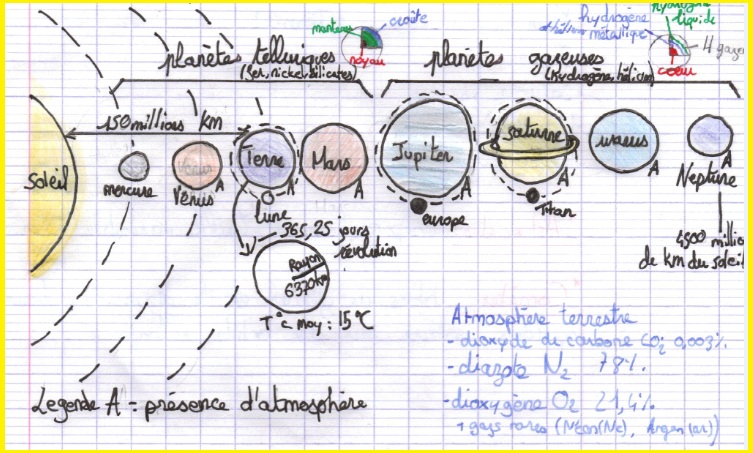 hydrogène
hydrogène
liquide
croûte
manteau
hélium métallique
4 gazes
planètes telluriques
noyau
planètes gazeuses
coeur
(fer, nickel, silicates)
(hydrogène, hélium)
150 millions km
Soleil
mercure
Vénus
A
Terre
A
Mars
A
Jupiter
A
saturne
A
uranus
A
A
Neptune
lune
europe
Titan
365,25 jours
révolution
Rayon
6370km
T°c moy : 15°C
4500 millio
de km du soleil
Atmosphère terrestre
- dioxyde de carbone CO2 0,003%
- diazote N2 78%
- dioxygène O2 21,4%
+ gazs rares (Néon(Ne), Argen(ar))
Legende A = présence d'atmosphère